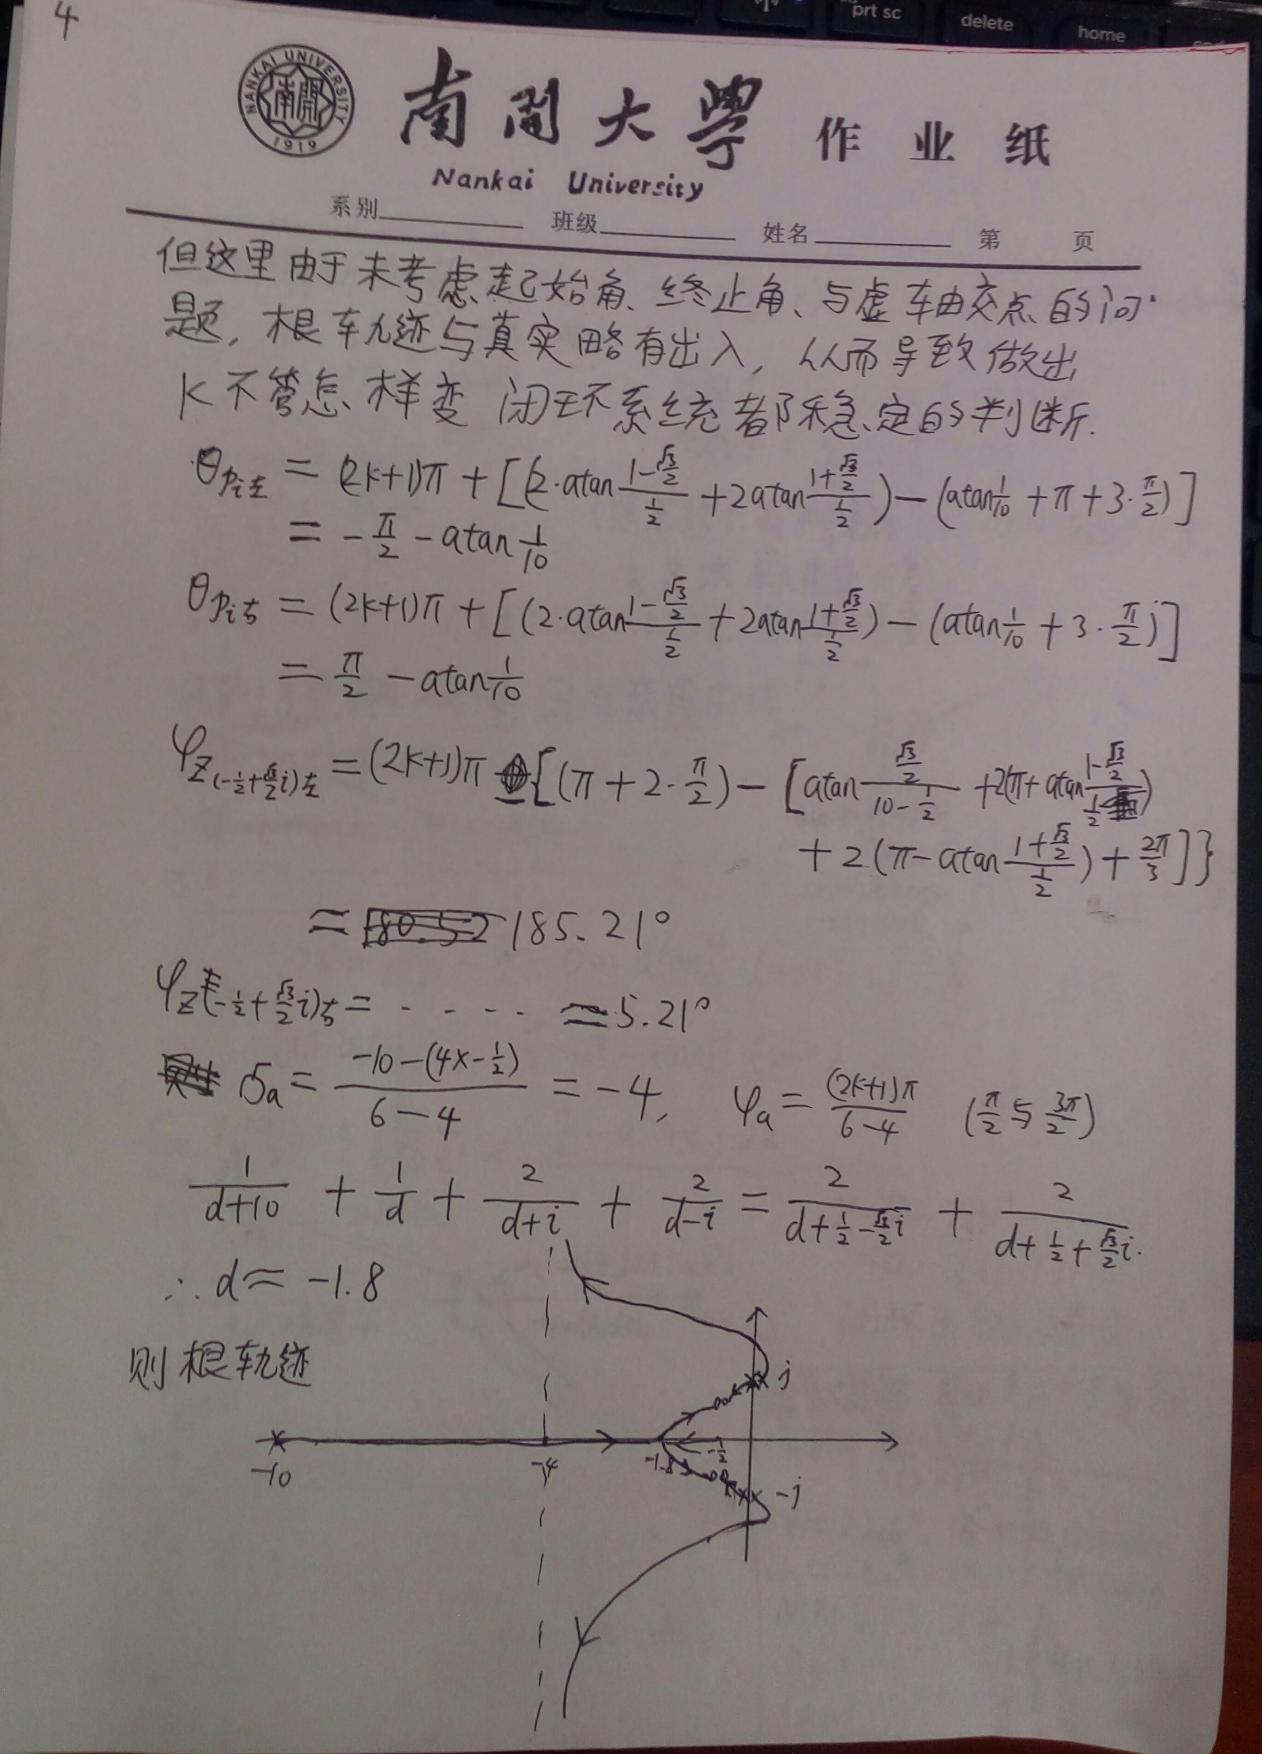 4
prt sc
delete
home
NANKAI UNIVERSITY
南開
1919
南開大學 作业纸
Nankai University
系别 班级 姓名 第 页
但这里由于未考虑起始角、终止角、与虚轴交点的问
题，根轨迹与真实略有出入，从而导致做出
K不管怎样变 闭环系统都稳定的判断.
θ_{Pi左} = (2k+1)π + [(2·atan\frac{1-\frac{√3}{2}}{\frac{1}{2}} + 2atan\frac{1+\frac{√3}{2}}{\frac{1}{2}}) - (atan\frac{1}{10} + π + 3·\frac{π}{2})]
= -\frac{π}{2} - atan\frac{1}{10}
θ_{Pi右} = (2k+1)π + [(2·atan\frac{1-\frac{√3}{2}}{\frac{1}{2}} + 2atan\frac{1+\frac{√3}{2}}{\frac{1}{2}}) - (atan\frac{1}{10} + 3·\frac{π}{2})]
= \frac{π}{2} - atan\frac{1}{10}
φ_{Z(-\frac{1}{2}+\frac{√3}{2}i)左} = (2k+1)π - {(π + 2·\frac{π}{2}) - [atan\frac{\frac{√3}{2}}{10-\frac{1}{2}} + 2(π + atan\frac{1-\frac{√3}{2}}{\frac{1}{2}})
+ 2(π - atan\frac{1+\frac{√3}{2}}{\frac{1}{2}}) + \frac{2π}{3}]}
≈ 185.21°
φ_{Z(-\frac{1}{2}+\frac{√3}{2}i)右} = - · - - · - ≈ 5.21°
σ_a = \frac{-10-(4×-\frac{1}{2})}{6-4} = -4, φ_a = \frac{(2k+1)π}{6-4} (\frac{π}{2}与\frac{3π}{2})
\frac{1}{d+10} + \frac{1}{d} + \frac{2}{d+i} + \frac{2}{d-i} = \frac{2}{d+\frac{1}{2}-\frac{√3}{2}i} + \frac{2}{d+\frac{1}{2}+\frac{√3}{2}i}.
∴ d ≈ -1.8
则根轨迹
j
-10 -4 -1.8 -\frac{1}{2}
-j